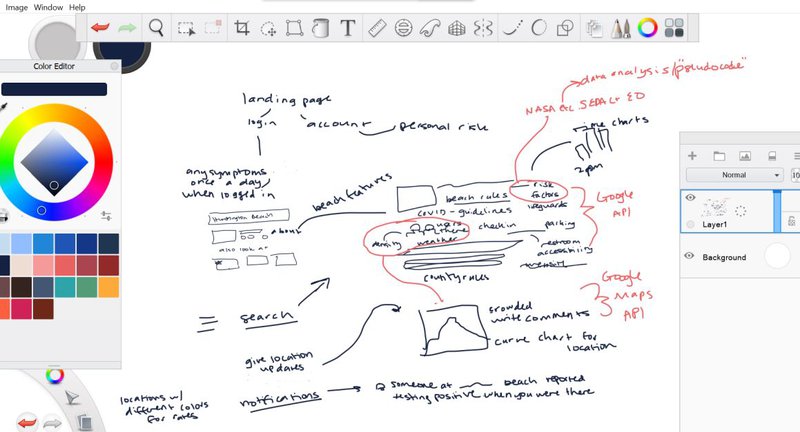 Image
Color Editor
Normal
Layer1
Background
data analysis/"pseudocode"
NASA
landing page
login
account
personal risk
time charts
2pm
any symptoms
once a day
when logged in
beach features
Huntington Beach
about
also look at
beach rules
risk
factors
covid-guidelines
lifeguards
users
there
checkin
parking
density
weather
restroom
accessibility
density
county rules
Google
API
Google
Maps
API
search
crowded
write comments
curve chart for
location
give location
updates
locations w/
different colors
for rates
notifications
someone at
beach reported
testing positive when you were there